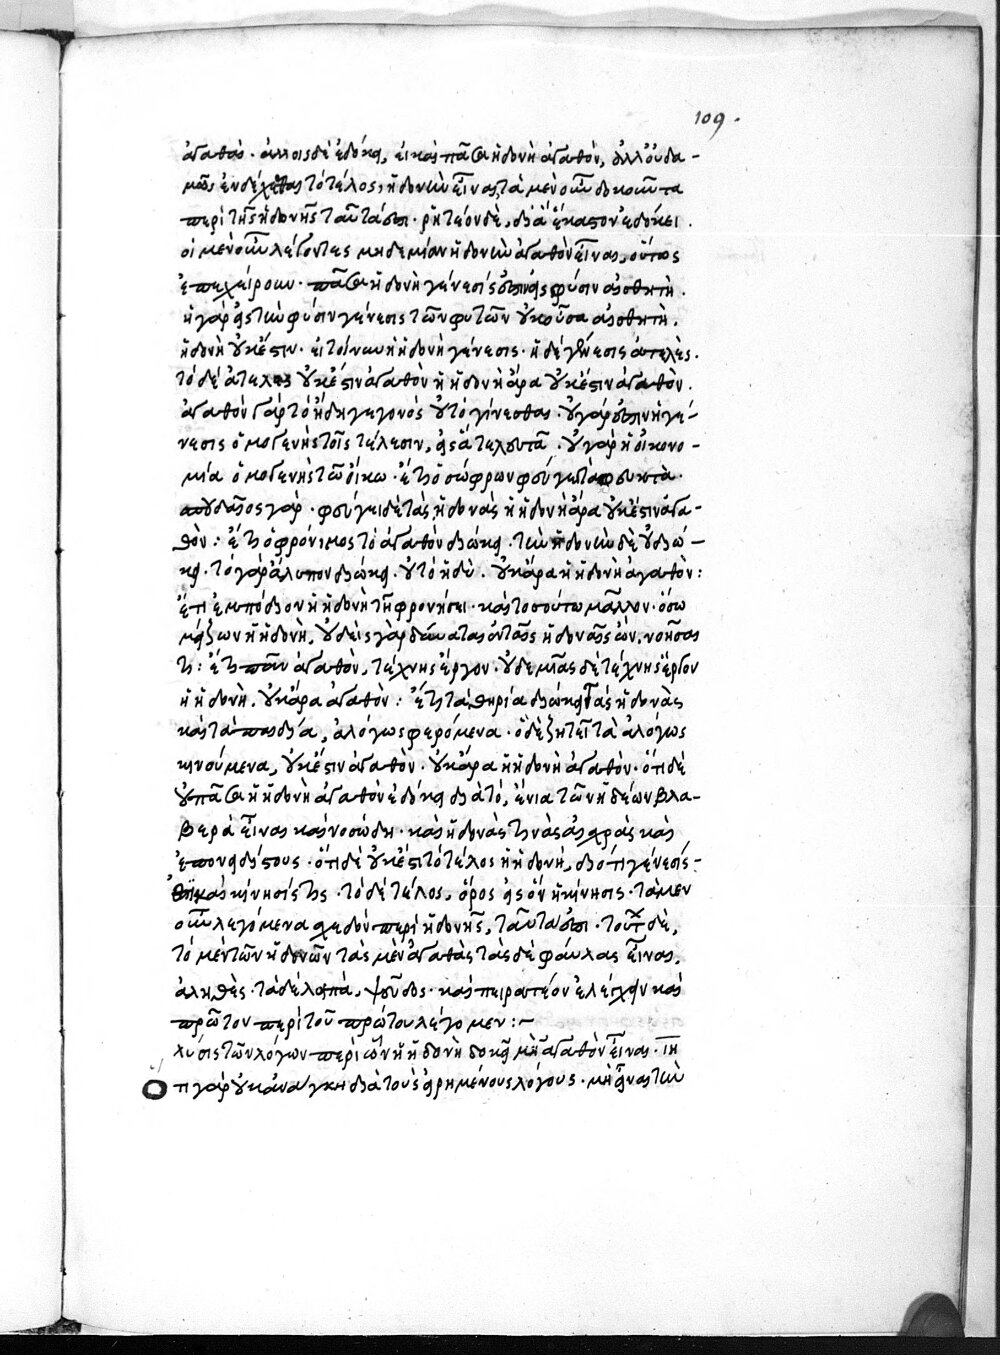 109.
ἀγαθάς. ἄλλοις δὲ ἐδόκει, εἰ καὶ πᾶσα ἡδονὴ ἀγαθὸν, ἀλλ' οὐδα-
μῶς ἐνδέχεσθαι τὸ τέλος, ἡδονὴν εἶναι, τὰ μὲν οὖν δοκοῦντα
περὶ τῆς ἡδονῆς ταῦτά ἐστι. ῥητέον δὲ, δι' ἃ ἕκαστον ἐδόκει.
οἱ μὲν οὖν λέγοντες μηδεμίαν ἡδονὴν ἀγαθὸν εἶναι, οὕτως
ἐπιχείρουν. πᾶσα ἡδονὴ γένεσίς ἐστιν εἰς φύσιν αἰσθητή.
ἡ γὰρ εἰς τὴν φύσιν γένεσις τῶν φυτῶν οὐκ οὖσα αἰσθητὴ.
ἡδονὴ οὐκ ἔστιν. εἰ τοίνυν ἡ ἡδονὴ γένεσις. ἡ δὲ γένεσις ἀτελὲς.
τὸ δὲ ἀτελὲς οὐκ ἔστιν ἀγαθὸν ἡ ἡδονὴ ἄρα οὐκ ἔστιν ἀγαθὸν.
ἀγαθὸν γὰρ τὸ ἤδη γεγονὸς οὐ τὸ γίνεσθαι. οὐ γάρ ἐστιν ἡ γέ-
νεσις ὁμογενὴς τοῖς τέλεσιν, εἰς ἃ τελευτᾶ. οὐ γὰρ ἡ οἰκονο-
μία ὁμογενὴς τῶ οἴκω. ἔτι ὁ σώφρων φεύγει τὰ φευκτὰ.
σπουδαῖος γάρ. φεύγει δὲ τὰς ἡδονάς ἡ ἡδονὴ ἄρα οὐκ ἔστιν ἀγα-
θὸν: ἔτι ὁ φρόνιμος τὸ ἀγαθὸν διώκει. τὴν ἡδονὴν δὲ οὐ διώ-
κει. τὸ γὰρ ἄλυπον διώκει. οὐ τὸ ἡδὺ. οὐκ ἄρα ἡ ἡδονὴ ἀγαθὸν:
ἔτι ἐμπόδιον ἡ ἡδονὴ τῆ φρονήσει. καὶ τοσούτω μᾶλλον. ὅσω
μείζων ἡ ἡδονὴ, οὐδεὶς γὰρ δύναται ἐν ταῖς ἡδοναῖς ὢν, νοῆσαι
τι: ἔτι πᾶν ἀγαθὸν, τέχνης ἔργον. οὐδεμιᾶς δὲ τέχνης ἔργον
ἡ ἡδονὴ. οὐκ ἄρα ἀγαθὸν: ἔτι τὰ θηρία διώκει τὰς ἡδονὰς
καὶ τὰ παιδία, ἀλόγως φερόμενα. ὃ δὲ ζητεῖ τὰ ἀλόγως
κινούμενα, οὐκ ἔστιν ἀγαθὸν. οὐκ ἄρα ἡ ἡδονὴ ἀγαθὸν. ὅτι δὲ
οὐ πᾶσα ἡ ἡδονὴ ἀγαθὸν ἐδόκει διὰ τὸ, ἔνια τῶν ἡδέων βλα-
βερὰ εἶναι καὶ νοσώδη. καὶ ἡδονὰς τινὰς αἰσχρὰς καὶ
ἐπονειδίστους. ὅτι δὲ οὐκ ἔστι τὸ τέλος ἡ ἡδονὴ, διότι γένεσίς-
ἐστι καὶ κίνησίς τις. τὸ δὲ τέλος, ὅρος εἰς ὃν ἡ κίνησις. τὰ μὲν
οὖν λεγόμενα σχεδὸν περὶ ἡδονῆς, ταῦτά ἐστι. τούτων δὲ,
τὸ μὲν τῶν ἡδονῶν τὰς μὲν ἀγαθὰς τὰς δὲ φαύλας εἶναι,
ἀληθὲς. τὰ δὲ λοιπὰ, ψεῦδος. καὶ πειρατέον ἐλέγχειν καὶ
πρῶτον περὶ τοῦ πρώτου λέγομεν:~
λύσις τῶν λόγων περὶ ὧν ἡ ἡδονὴ δοκεῖ μὴ ἀγαθὸν εἶναι.
τι γὰρ οὐκ ἀνάγκη διὰ τοὺς εἰρημένους λόγους. μὴ εἶναι τὴν